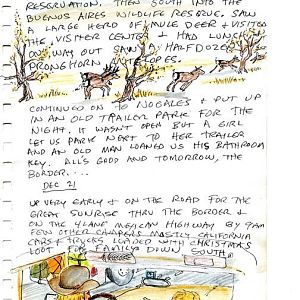 RESERVATION. THEN SOUTH INTO THE
BUENOS AIRES WILDLIFE RESERVE. SAW
A LARGE HERD OF MULE DEER + VISITED
THE VISITER CENTER + HAD LUNCH
ON WAY OUT SAW A HALF DOZEN
PRONGHORN ANTELOPES.
CONTINUED ON TO NOGALES + PUT UP
IN AN OLD TRAILER PARK FOR THE
NIGHT, IT WASN'T OPEN BUT A GIRL
LET US PARK NEXT TO HER TRAILER
AND AN OLD MAN LOANED US HIS BATHROOM
KEY. ALL'S GOOD AND TOMORROW, THE
BORDER....
DEC 21
UP VERY EARLY + ON THE ROAD FOR THE
GREAT SUNRISE THRU THE BORDER +
ON THE 4 LANE MEXICAN HIGHWAY BY 9AM
FEW OTHER CAMPERS MOSTLY CALIFORNIA
CARS + TRUCKS LOADED WITH CHRISTMAS
LOOT FOR FAMILYS DOWN SOUTH